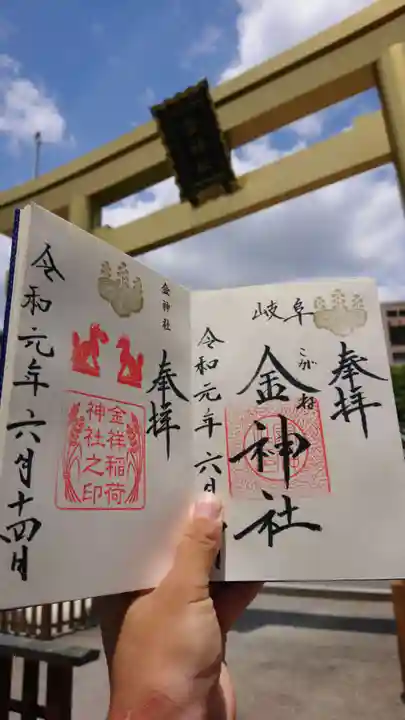 岐阜
奉拝
こがね
金神社
令和元年六月
金神社
奉拝
金祥稲荷
神社之印
令和元年六月十四日